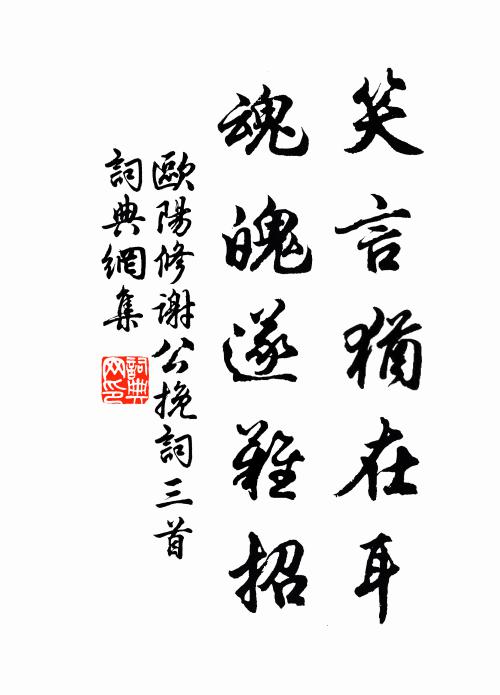 笑言猶在耳
魂魄遂難招
歐陽修謝公挽詞三首
詞典網集
詞典網印